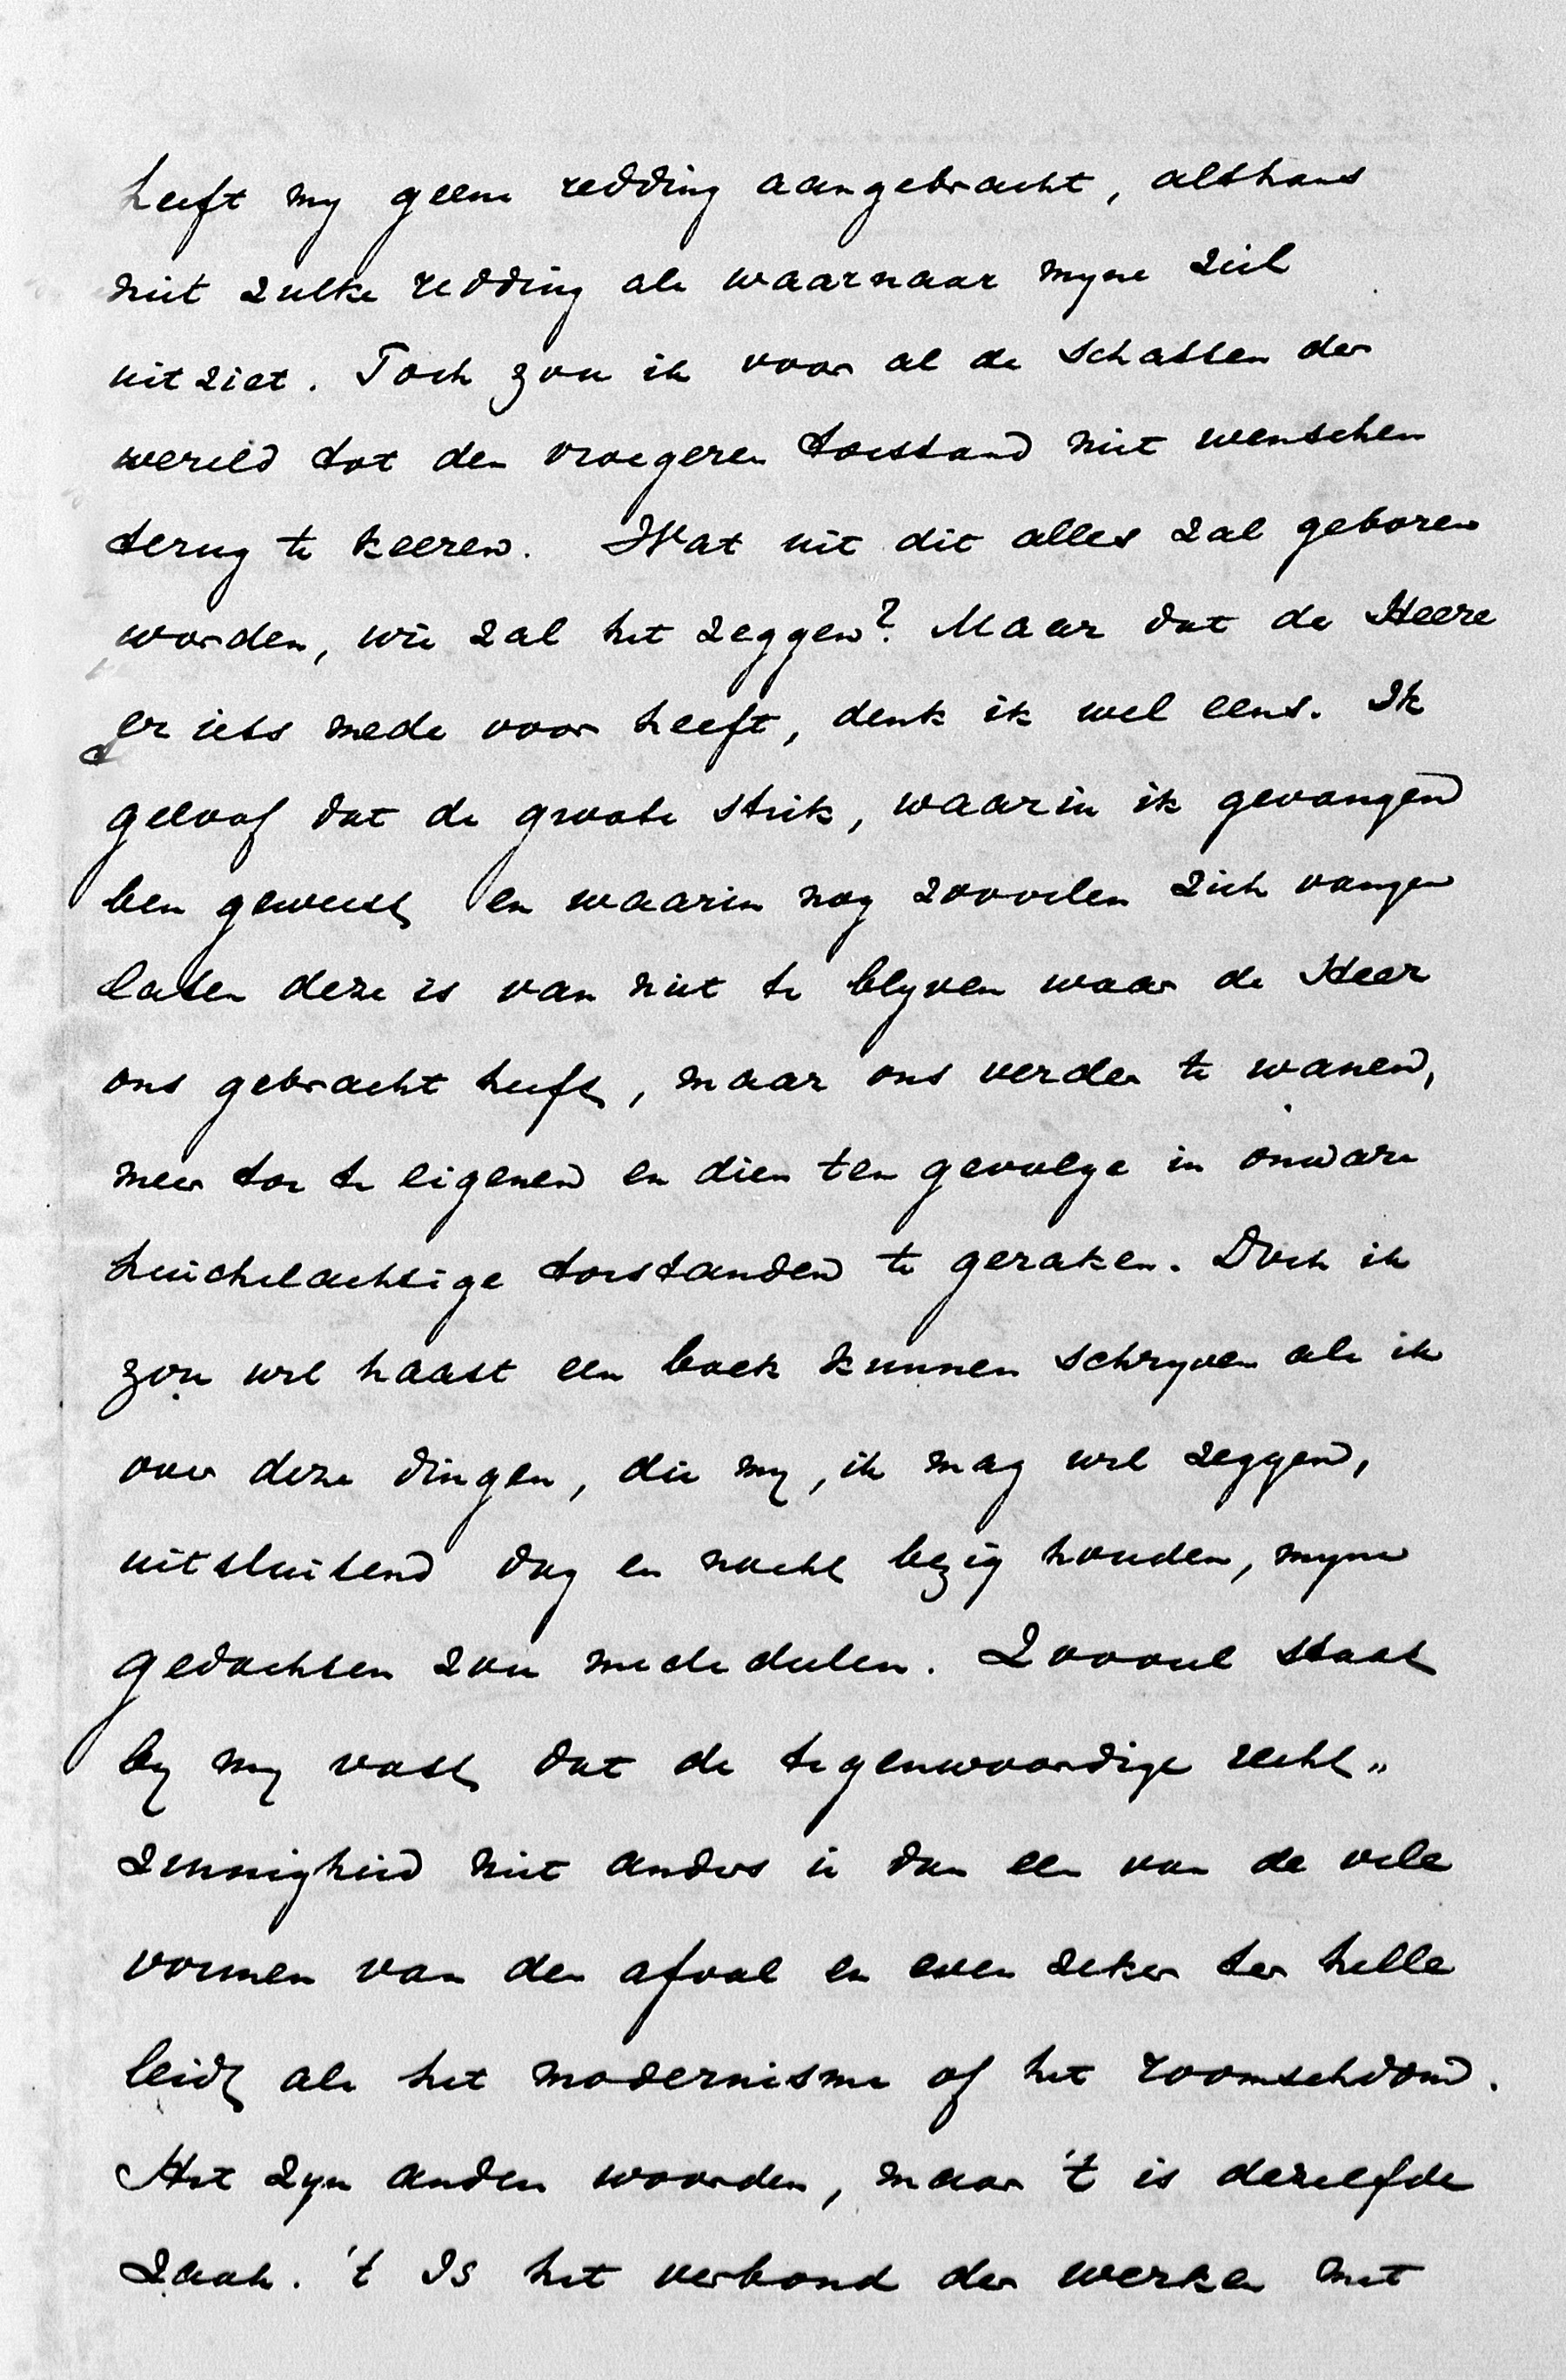 heeft my geene redding aangebracht, althans
niet zulke redding als waarnaar myne ziel
uitziet. Toch zou ik voor al de schatten der
wereld tot den vroegeren toestand niet wenschen
terug te keeren. Wat uit dit alles zal geboren
worden, wie zal het zeggen? Maar dat de Heere
er iets mede voor heeft, denk ik wel eens. Ik
geloof dat de groote strik, waarin ik gevangen
ben geweest en waarin nog zoovelen zich vangen
laten deze is van niet te blyven waar de Heer
ons gebracht heeft, maar ons verder te wanen,
meer toe te eigenen en dien ten gevolge in onware
huichelachtige toestanden te geraken. Doch ik
zou wel haast een boek kunnen schryven als ik
over deze dingen, die my, ik mag wel zeggen,
uitsluitend dag en nacht bezig houden, myne
gedachten zou mededeelen. Zooveel staat
by my vast dat de tegenwoordige recht„
zinnigheid niet anders is dan een van de vele
vormen van den afval en even zeker ter helle
leidt als het modernisme of het roomschdom.
Het zyn andere woorden, maar 't is dezelfde
zaak. 't Is het verbond der werken met